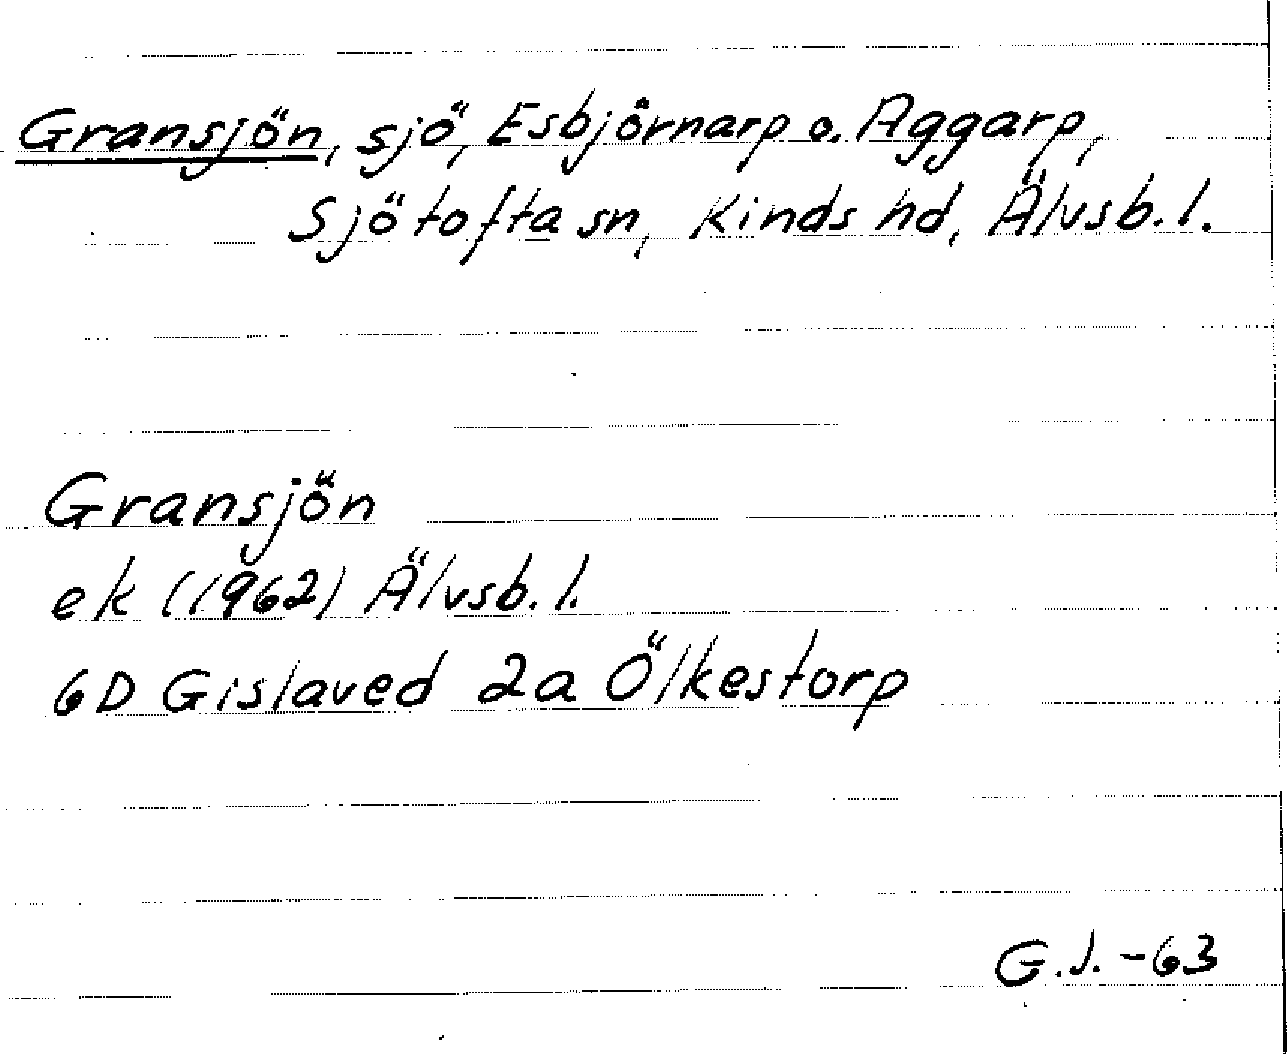 Gransjön, sjö, Esbjörnarp o. Aggarp,
Sjötofta sn, Kinds hd, Älvsb. l.
Gransjön
ek (1962) Älvsb. l.
6D Gislaved 2a Ölkestorp
G.J. -63